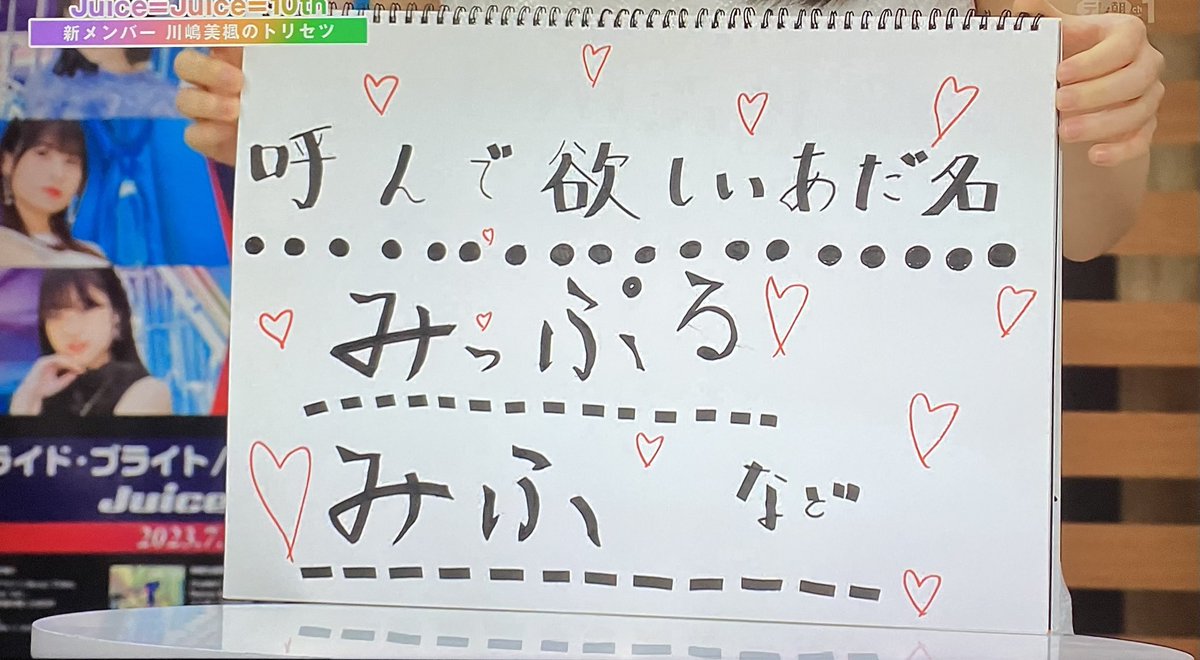 Juice=Juice=10th
新メンバー 川嶋美楓のトリセツ
呼んで欲しいあだ名
みっぷる
みふ など
ライド・ブライト/
Juice
2023.7.